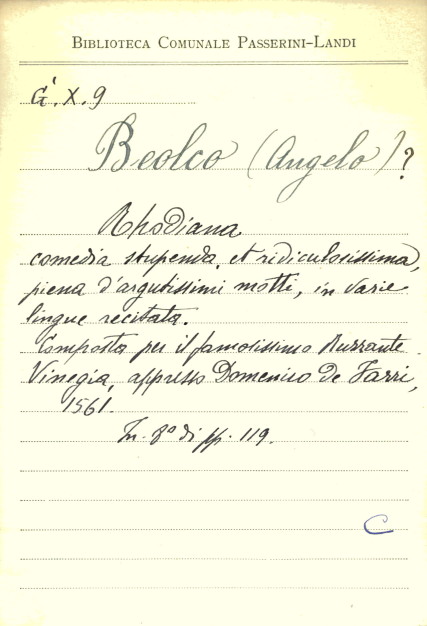 BIBLIOTECA COMUNALE PASSERINI-LANDI
G'. X. 9
Beolco (Angelo)?
Rhodiana
comedia stupenda, et ridiculosissima,
piena d'argutissimi motti, in varie
lingue recitata.
Composta per il famosissimo Ruzzante.
Vinegia, appresso Domenico de Farri,
1561.
In-8° di pp. 119.
C